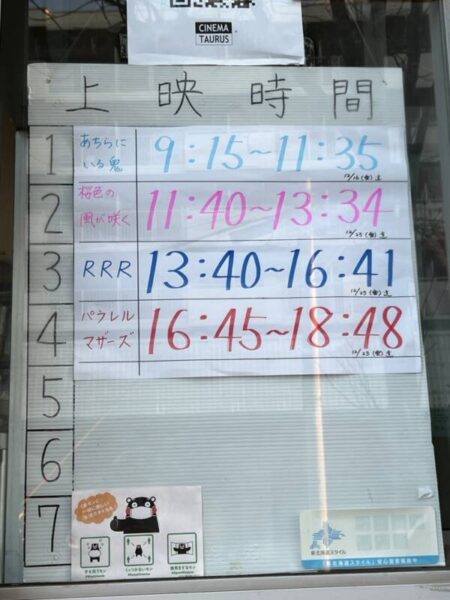 CINEMA
TAURUS
上映時間
1 あちらにいる鬼 9:15~11:35
12/16(金)迄
2 桜色の風が咲く 11:40~13:34
12/23(金)迄
3 RRR 13:40~16:41
12/23(金)迄
4 パラレルマザーズ 16:45~18:48
12/23(金)迄
5
6
7
新北海道スタイル